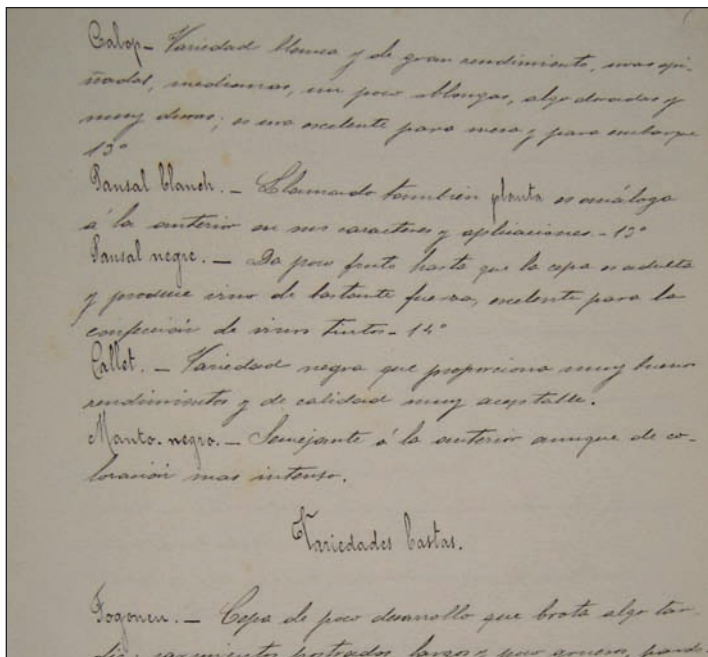 Calop — Variedad blanca y de gran rendimiento, uvas api-
ñadas, medianas, un poco oblongas, algo doradas y
muy duras; es uva excelente para mesa y para embarque
13°
Pansal blanch. — Llamado tambien planta es análoga
á la anterior en sus caracteres y aplicaciones. - 13°
Pansal negre. — Da poco fruto hasta que la cepa es adulta
y produce vino de bastante fuerza, excelente para la
confección de vinos tintos - 14°
Callet. — Variedad negra que proporciona muy buenos
rendimientos y de calidad muy aceptable.
Manto-negro. — Semejante á la anterior aunque de co-
loración mas intensa.
Variedades bastas.
Fogoneu. — Cepa de poco desarrollo que brota algo tar-
sarmientos postrados largos y poco gruesos,